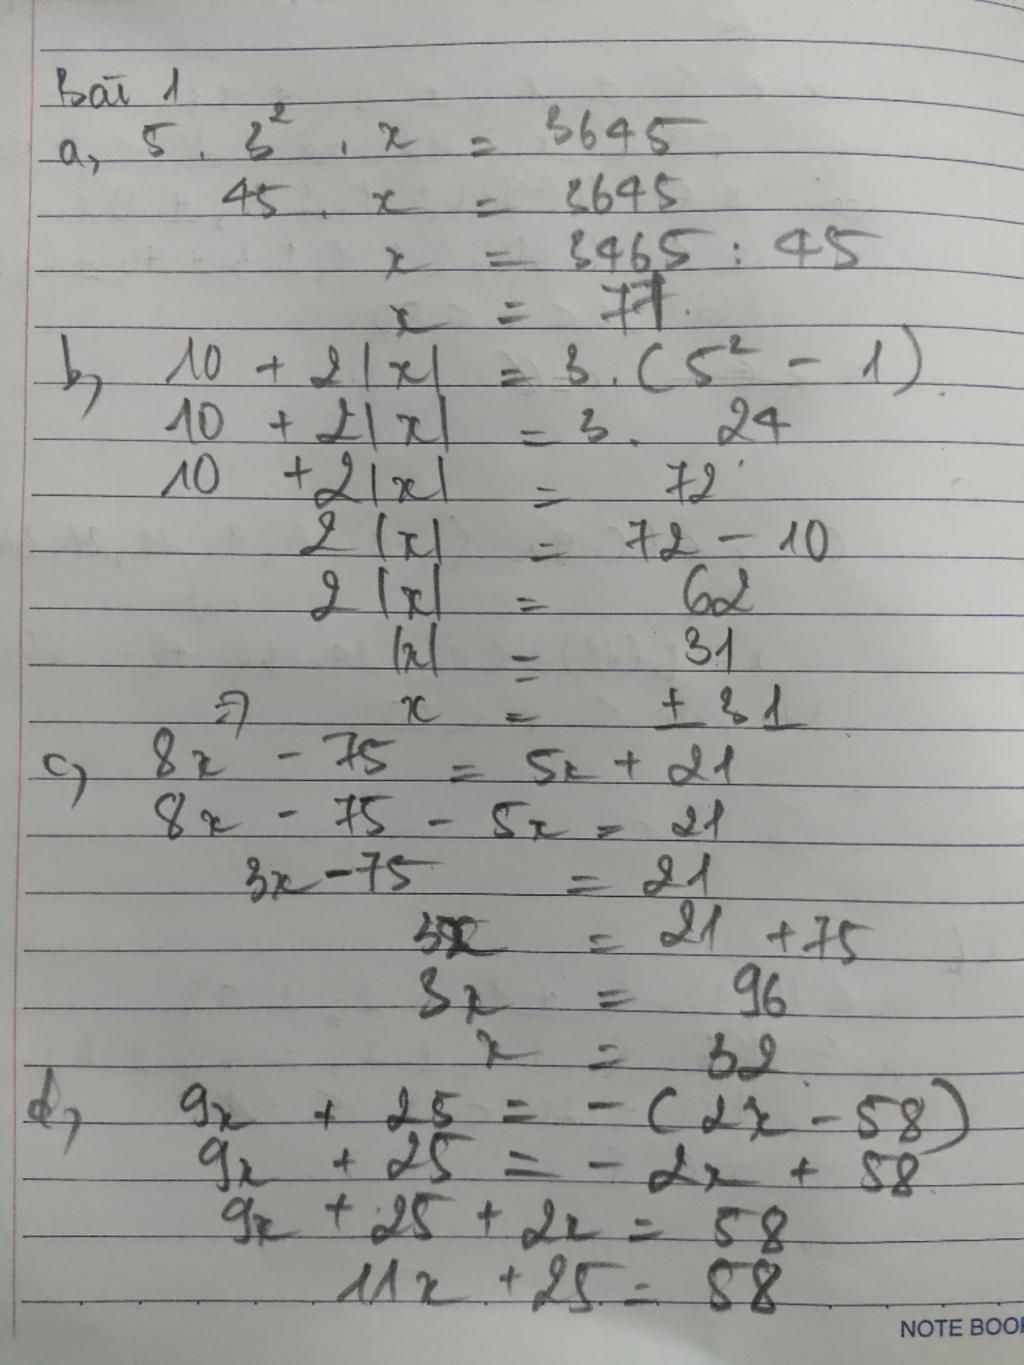 Bài 1
a, 5 . 3² . x = 3645
45 . x = 3645
x = 3465 : 45
x = 77.
b, 10 + 2|x| = 3.(5² - 1).
10 + 2|x| = 3. 24
10 + 2|x| = 72
2|x| = 72 - 10
2|x| = 62
|x| = 31
=> x = ± 31
c, 8x - 75 = 5x + 21
8x - 75 - 5x = 21
3x - 75 = 21
3x = 21 + 75
3x = 96
x = 32
d, 9x + 25 = - (2x - 58)
9x + 25 = - 2x + 58
9x + 25 + 2x = 58
11x + 25 = 58
NOTE BOO